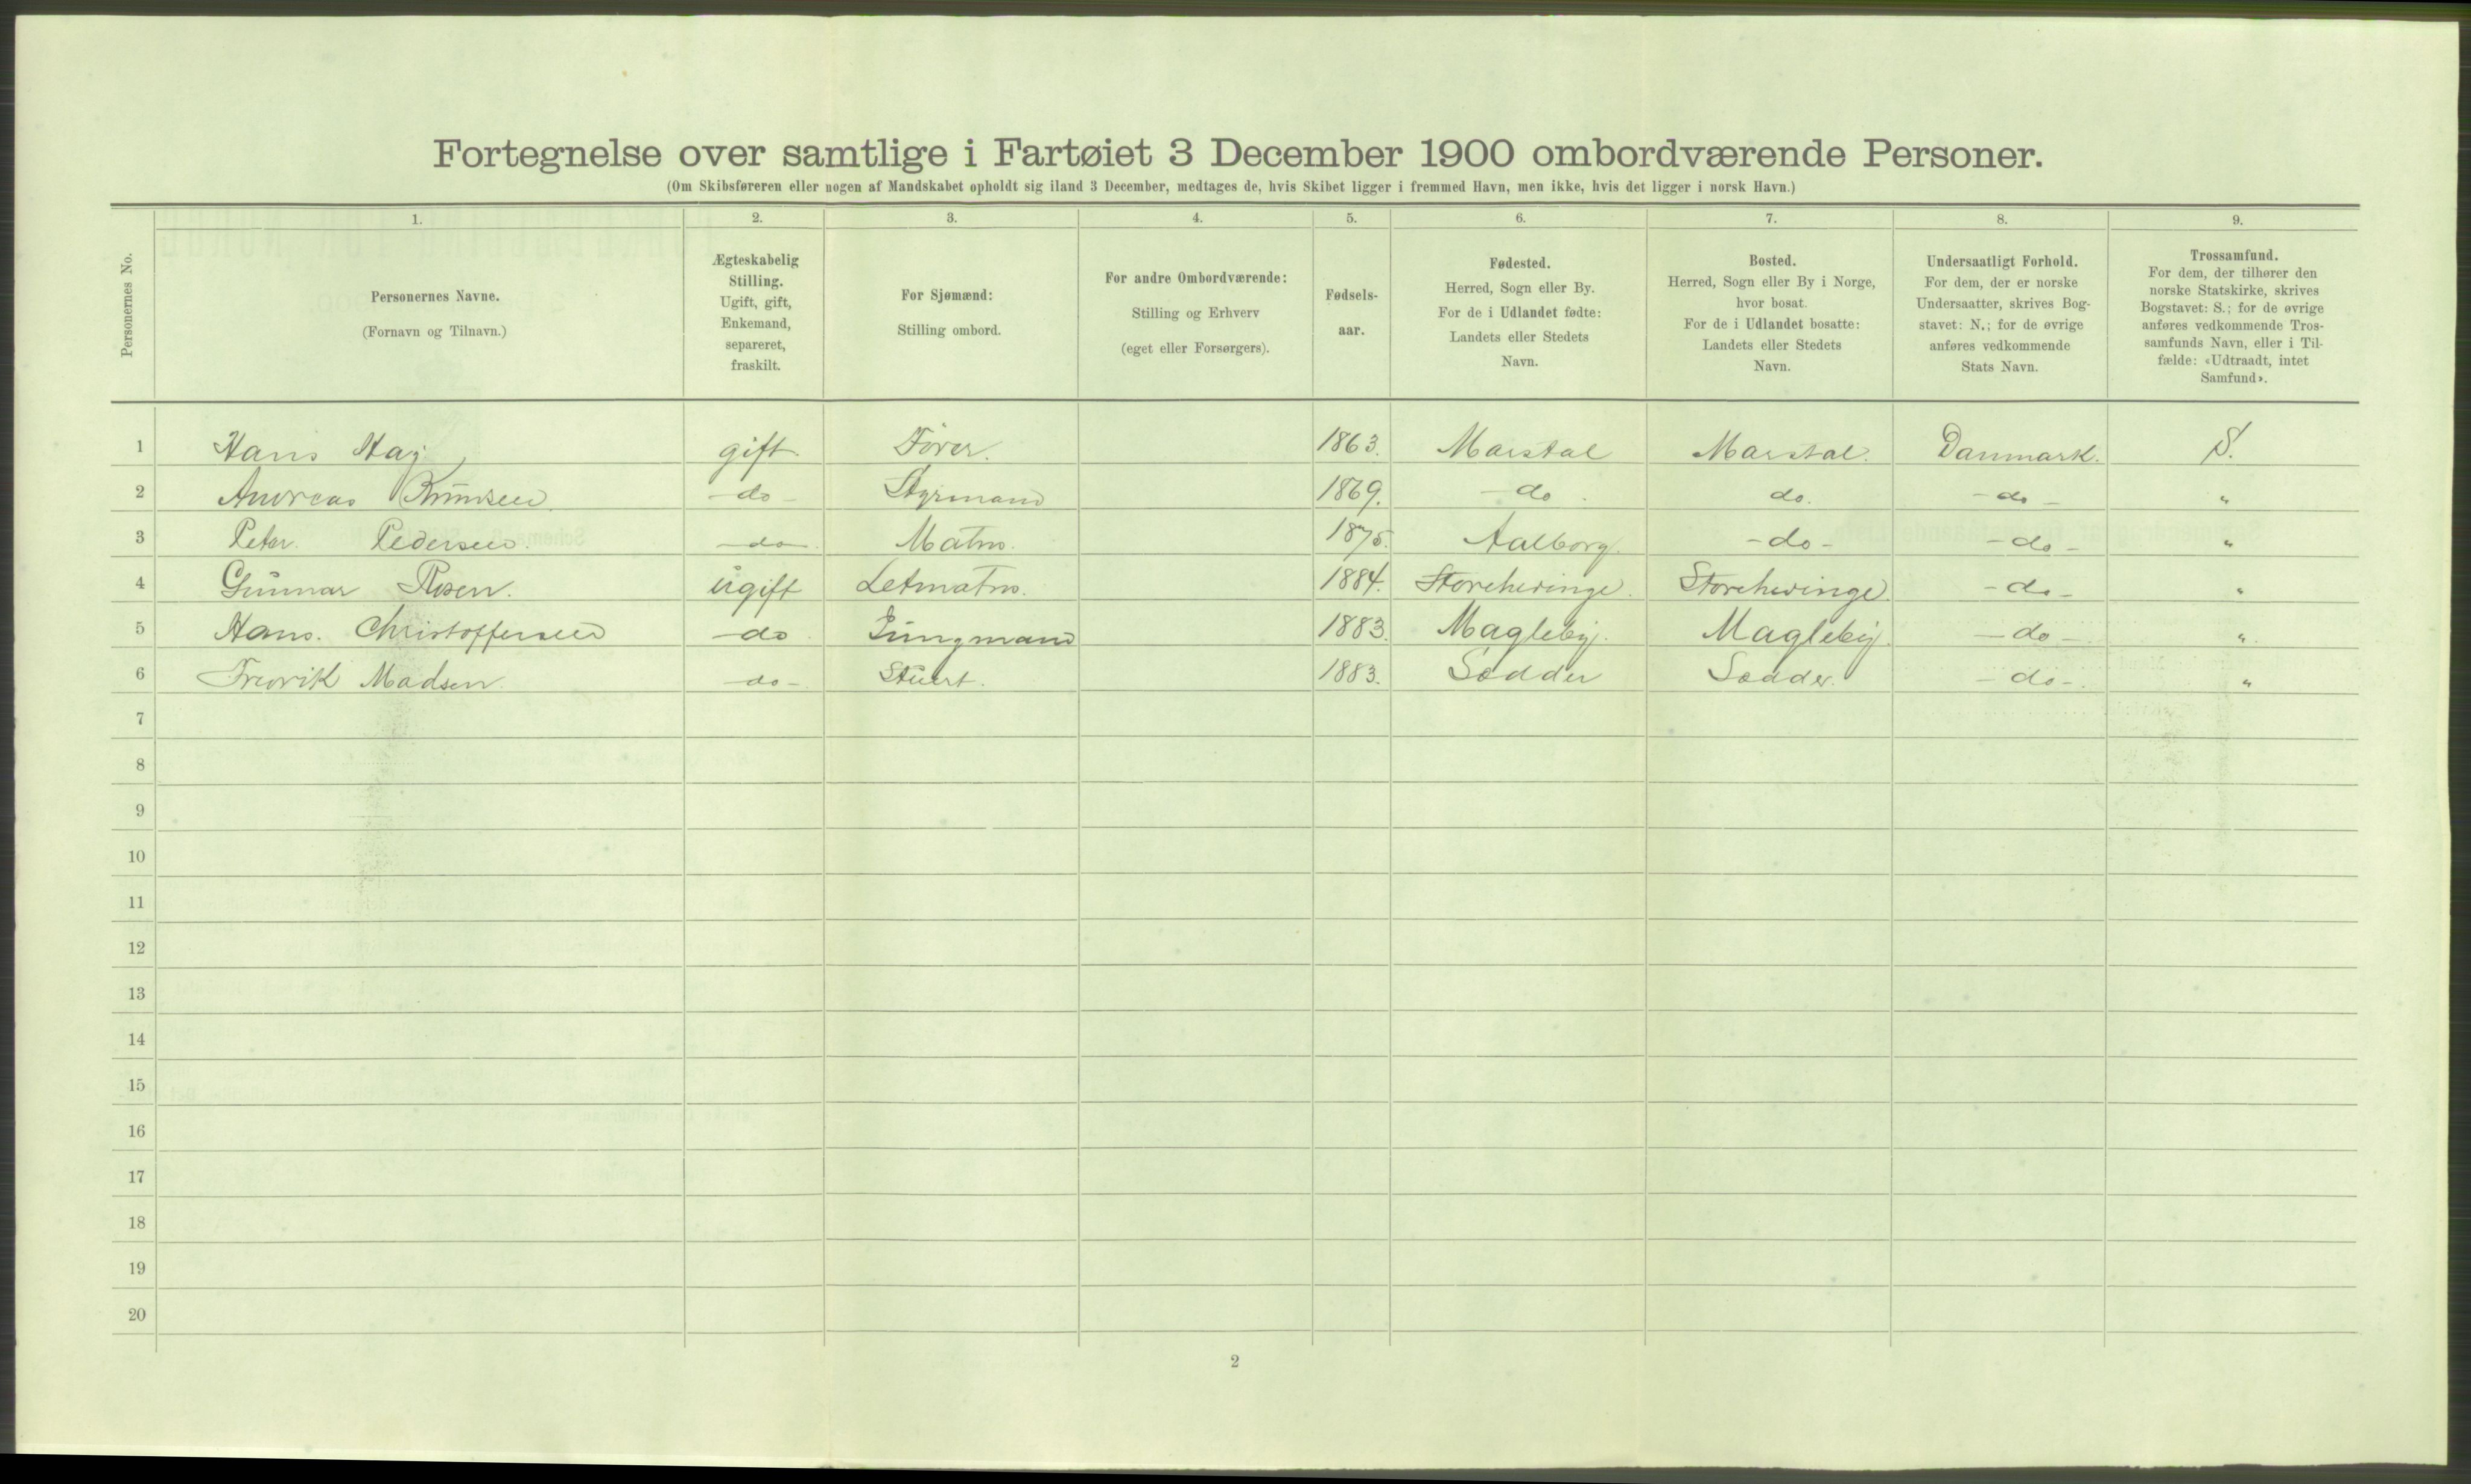 Fortegnelse over samtlige i Fartøiet 3 December 1900 ombordværende Personer.
(Om Skibsføreren eller nogen af Mandskabet opholdt sig iland 3 December, medtages de, hvis Skibet ligger i fremmed Havn, men ikke, hvis det ligger i norsk Havn.)
Personernes No.
1.
Personernes Navne.
(Fornavn og Tilnavn.)
2.
Ægteskabelig
Stilling.
Ugift, gift,
Enkemand,
separeret,
fraskilt.
3.
For Sjømænd:
Stilling ombord.
4.
For andre Ombordværende:
Stilling og Erhverv
(eget eller Forsørgers).
5.
Fødsels-
aar.
6.
Fødested.
Herred, Sogn eller By.
For de i Udlandet fødte:
Landets eller Stedets
Navn.
7.
Bosted.
Herred, Sogn eller By i Norge,
hvor bosat.
For de i Udlandet bosatte:
Landets eller Stedets
Navn.
8.
Undersaatligt Forhold.
For dem, der er norske
Undersaatter, skrives Bog-
stavet: N.; for de øvrige
anføres vedkommende
Stats Navn.
9.
Trossamfund.
For dem, der tilhører den
norske Statskirke, skrives
Bogstavet: S.; for de øvrige
anføres vedkommende Tros-
samfunds Navn, eller i Til-
fælde: «Udtraadt, intet
Samfund».
1 Hans gift. Fører. 1863. Marstal Marstal. Danmark. S.
2 Andreas -do- Styrmand 1869. -do. do. -do- "
3 Peter. Pedersen. -do- Matro. 1875. Aalborg. -do- -do- "
4 Gunnar Rosen. ugift Letmatro. 1884. Storehedinge. Storehedinge -do- "
5 Hans. Christoffersen -do. Jungmand 1883. Magleby. Magleby. -do- "
6 Fredrik Madsen. -do- Stuert. 1883. Sædder Sædder. -do- "
7
8
9
10
11
12
13
14
15
16
17
18
19
20
2